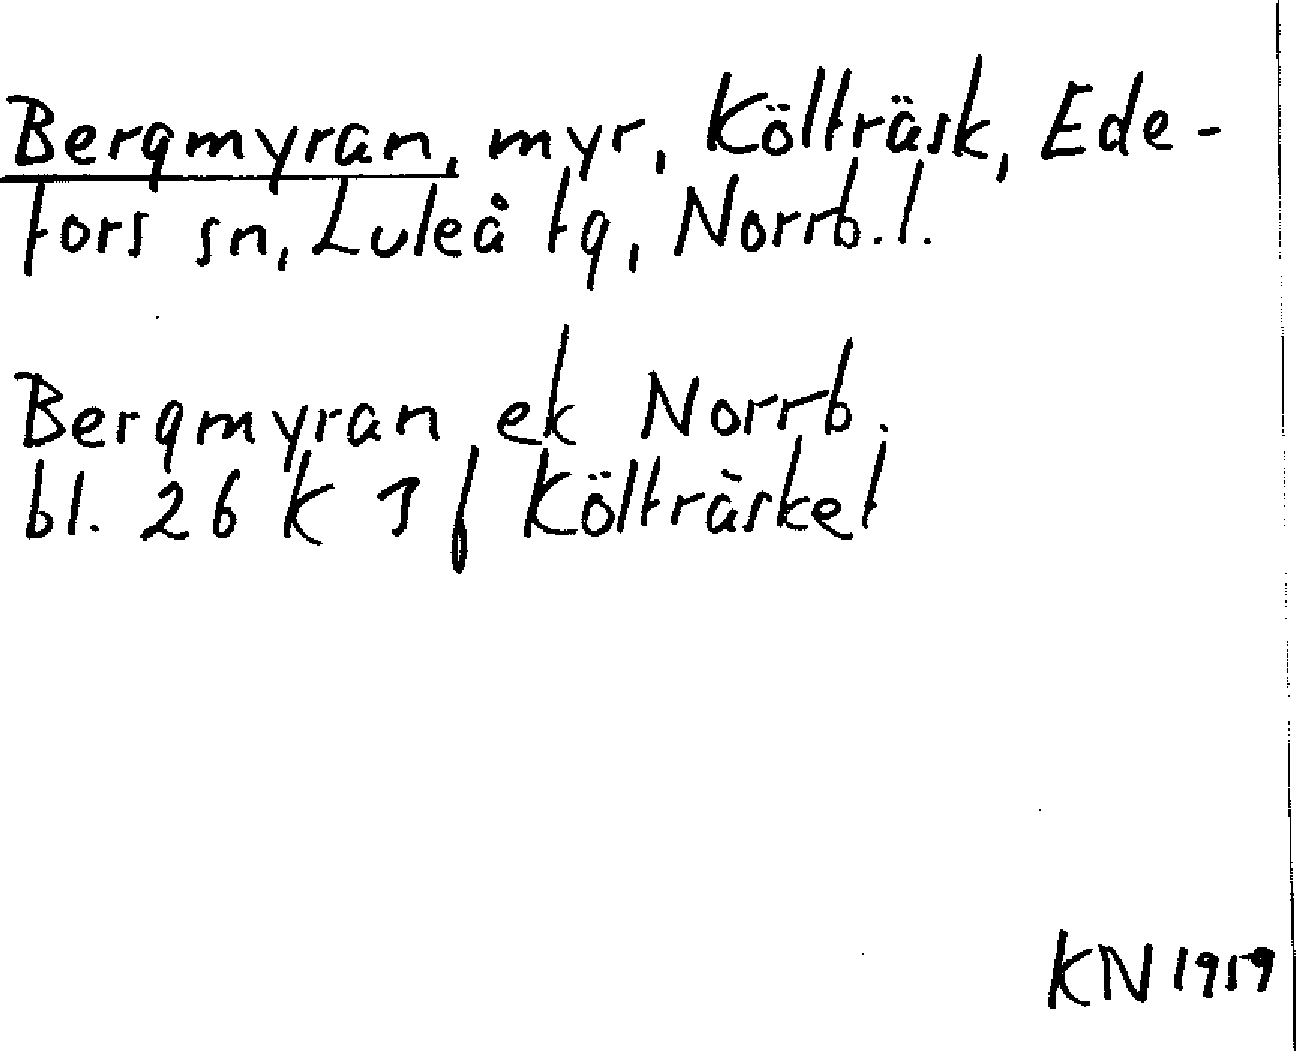 Bergmyran, myr, Költräsk, Ede-
fors sn, Luleå tg, Norrb.l.
Bergmyran ek Norrb.
bl. 26 K 1 f Költräsket
KN 1919